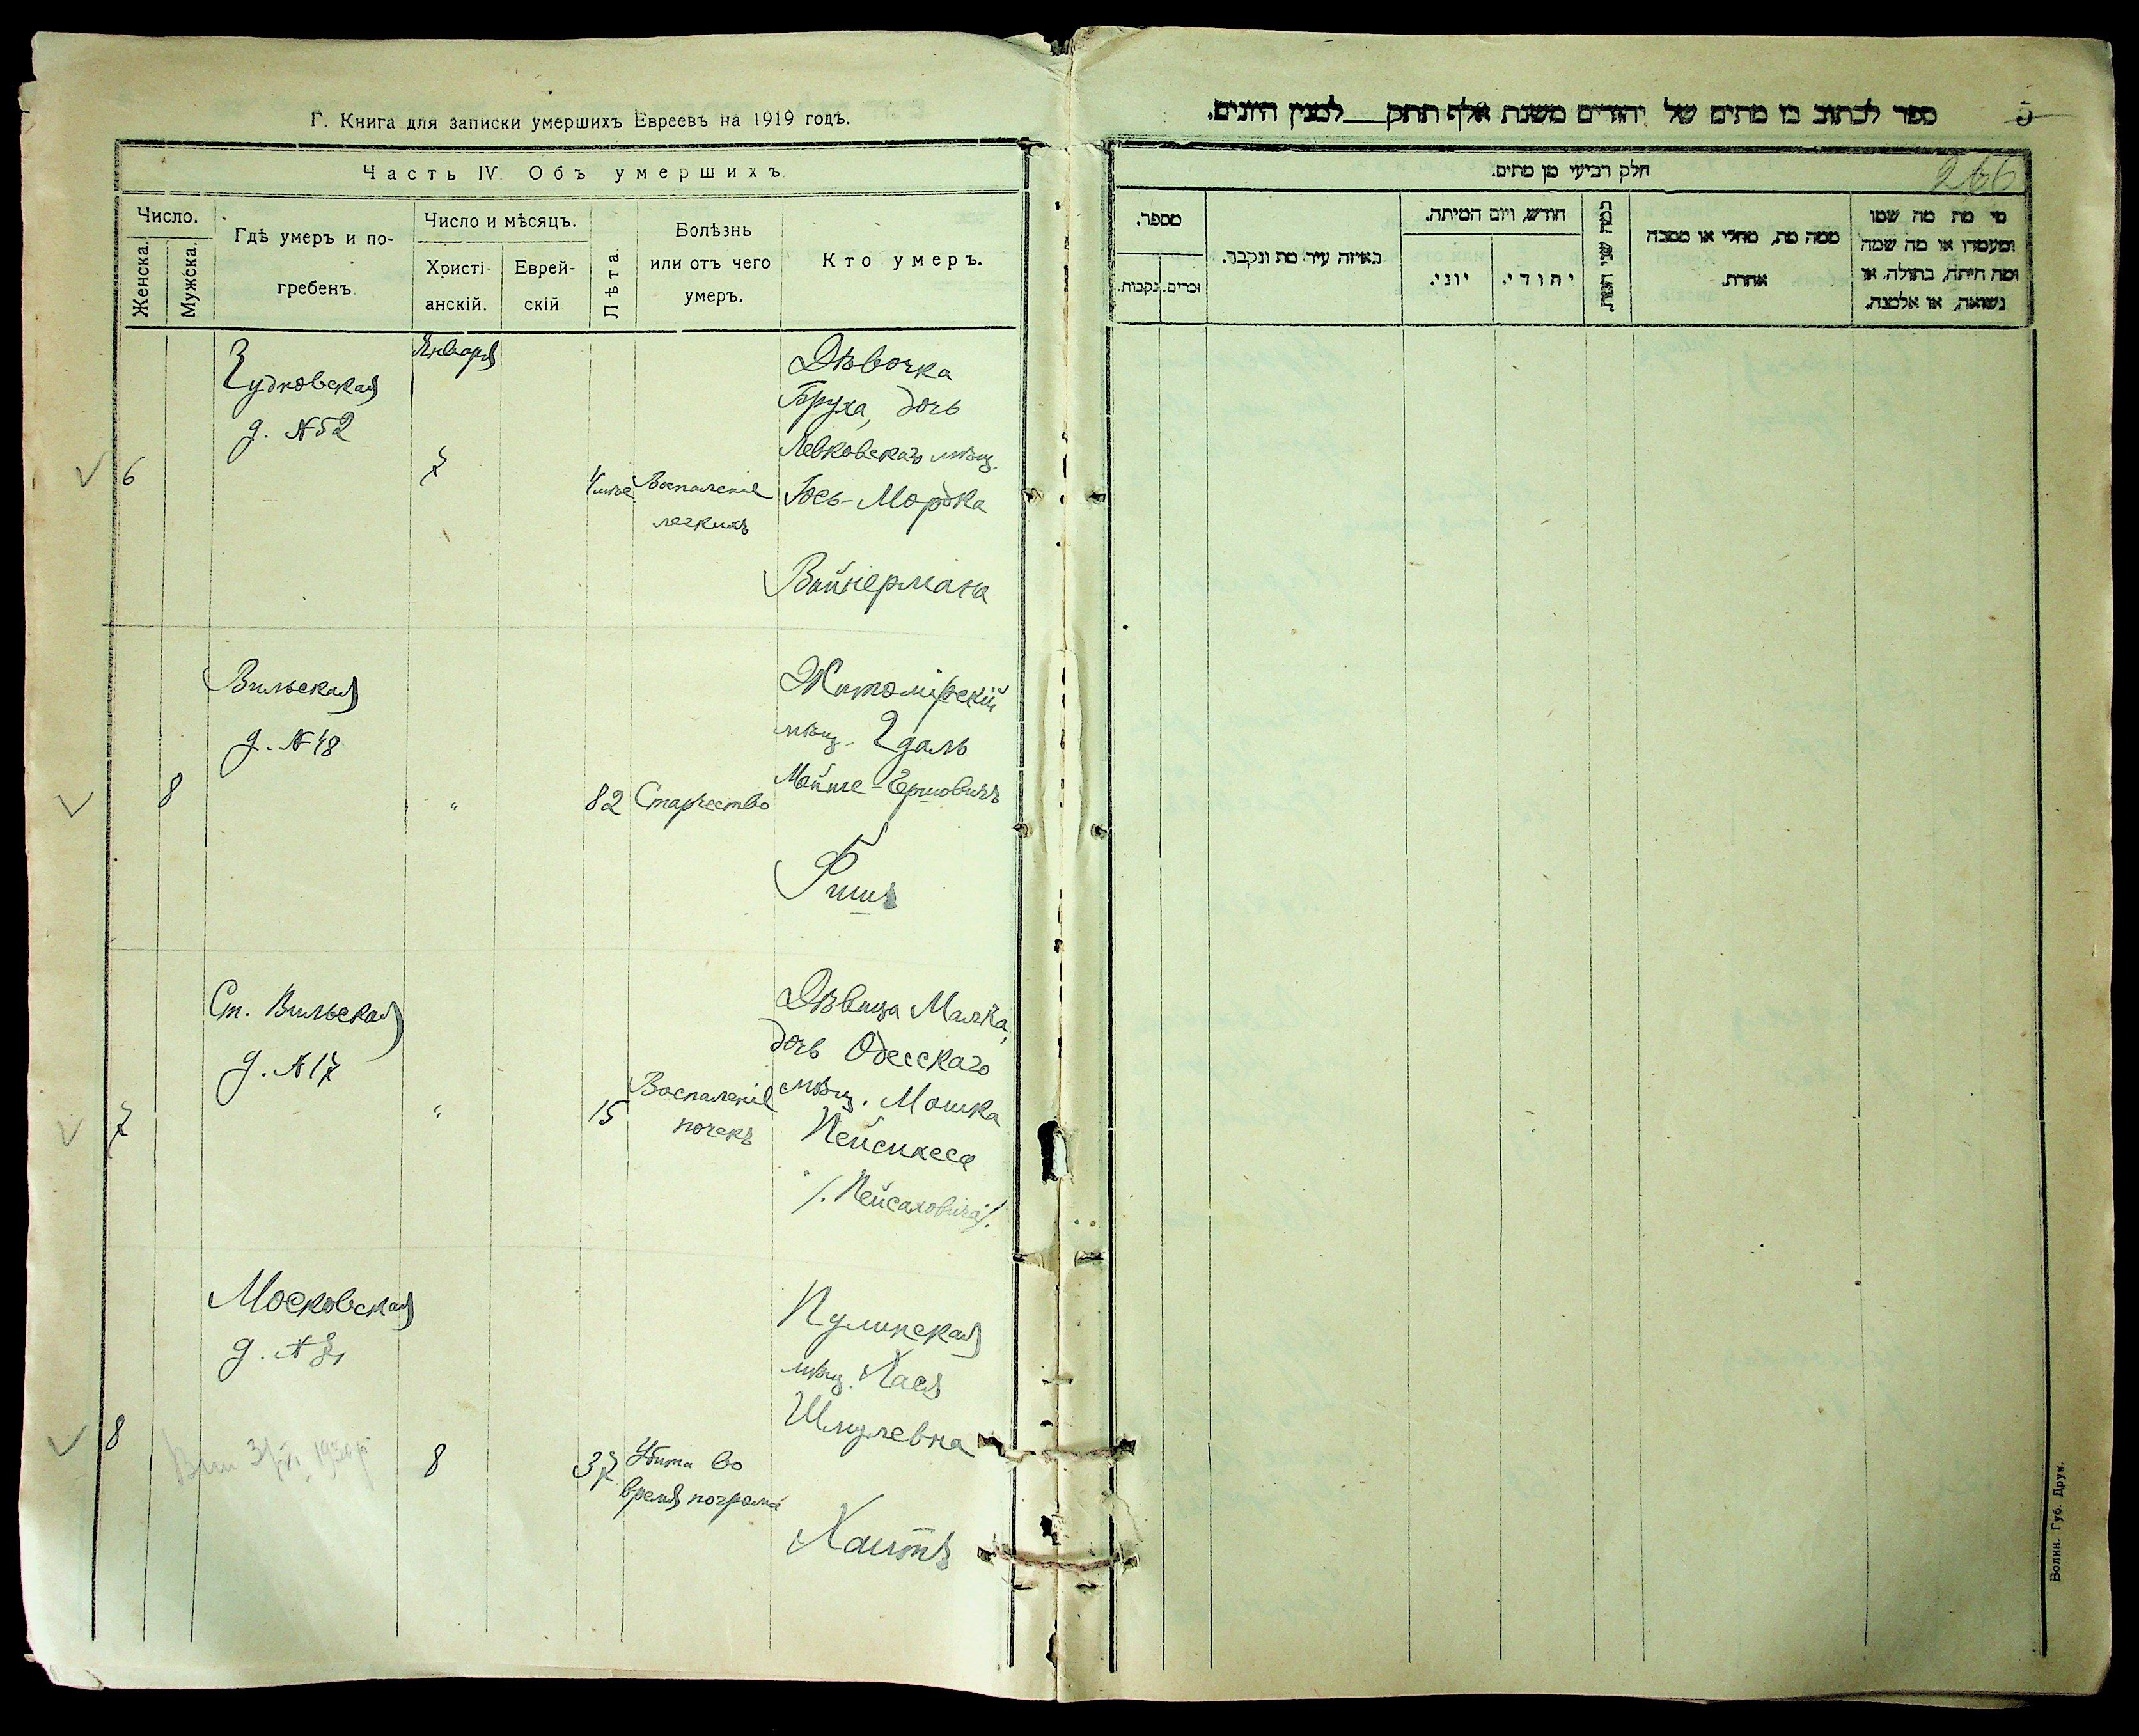 Г. Книга для записки умершихъ Евреевъ на 1919 годъ.
Часть IV. Объ умершихъ
Число.
Женска.
Мужска.
Гдѣ умеръ и по-
гребенъ
Число и мѣсяцъ.
Христі-
анскій.
Еврей-
скій
Лѣта.
Болѣзнь
или отъ чего
умеръ.
Кто умеръ.
6
Чудновская
д. №52
Января
7
Воспаленіе
легкихъ
Дѣвочка
Бруха, дочь
Левковскаго мѣщ.
Іось-Мордка
Вайнермана
8
Вильская
д. №48
"
82
Старчество
Житомірскій
мѣщ.
Мойше-Гершовичъ
7
Ст. Вильская
д. №17
"
15
Воспаленіе
почекъ
Дѣвица Малка,
дочь Одесскаго
мѣщ. Мошка
Пейсихеса
/. Пейсаховича/.
8
Московская
д. №
8
37
Убита во
время погрома
Пулинская
мѣщ. Хася
Шмулевна
Хаитъ
ספר לכתוב בו מתים של יהודים משנת אלף תתק לסנין היונים.
5
266
חלק רביעי מן מתים.
מספר.
נקבות.
זכרים.
באיזה עיר מת ונקבר.
חודש ויום המיתה.
יוני.
יהודי.
כמה שני המת
ממה מת, מחלי או מסבה
אחרת.
מי מת מה שמו
ומעמדו או מה שמה
ומה היתה, בתולה, או
נשואה, או אלמנה.
Волин. Губ. Друк.